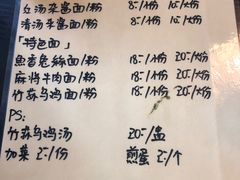 红汤杂酱面/粉 8-/小份 10-/大份
清汤杂酱面/粉 8-/小份 10-/大份
「特色面」
鱼香兔丝面/粉 18-/小份 20-/大份
麻将牛肉面/粉 18-/小份 20-/大份
竹荪乌鸡面/粉 18-/小份 20-/大份
PS:
竹荪乌鸡汤 20-/盅
加菜 2-/份 煎蛋 2-/个